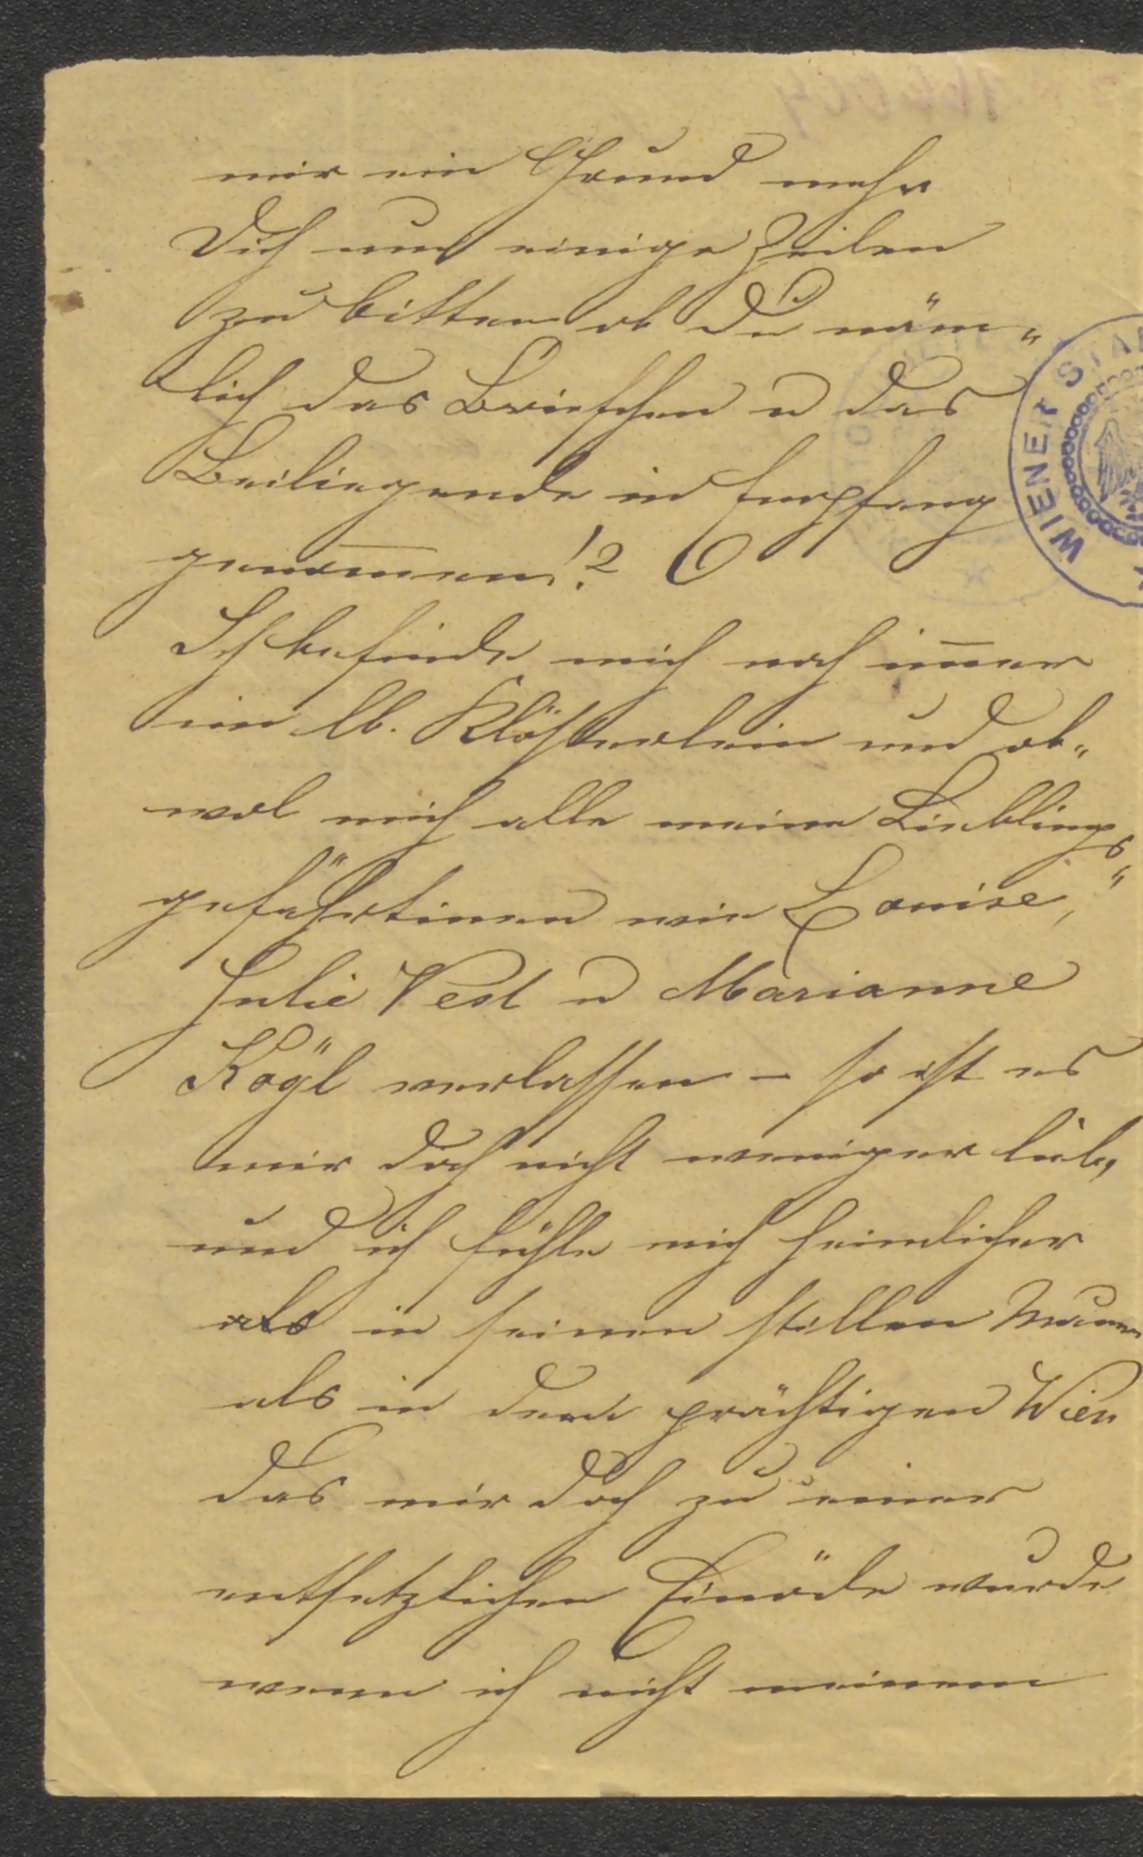 mir ein Grund mehr
Dich um einige Zeilen
zu bitten ob Du näm„
lich das Briefchen u das
Beiliegende in Empfang
genommen!?
Ich befinde mich noch immer
im lb. Klösterlein und ob„
wol mich alle meine Lieblings„
gefährtinen wie Louise,
Julie Vest u Marianne
Kögl verlassen – so ist es
mir doch nicht weniger lieb,
und ich fühle mich heimlicher
als in seinen stillen Mauern
als in dem prächtigen Wien
das mir doch zu einer
entsetzlichen Einöde wurde
wenn ich nicht meinem
WIENER STA